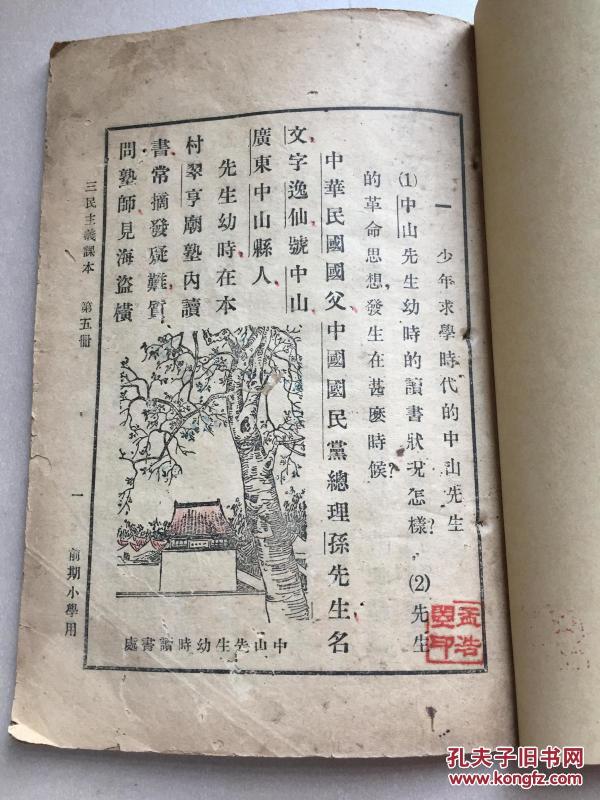 一 少年求學時代的中山先生
⑴中山先生幼時的讀書狀况怎樣？⑵先生
的革命思想，發生在甚麽時候？
中華民國國父，中國國民黨總理孫先生名
文，字逸仙，號中山，
廣東中山縣人。
先生幼時在本
村翠亨廟塾內讀
書，常摘發疑難，質
問塾師，見海盜橫
中山先生幼時讀書處
三民主義課本 第五冊 一 前期小學用
孔夫子旧书网
www.kongfz.com